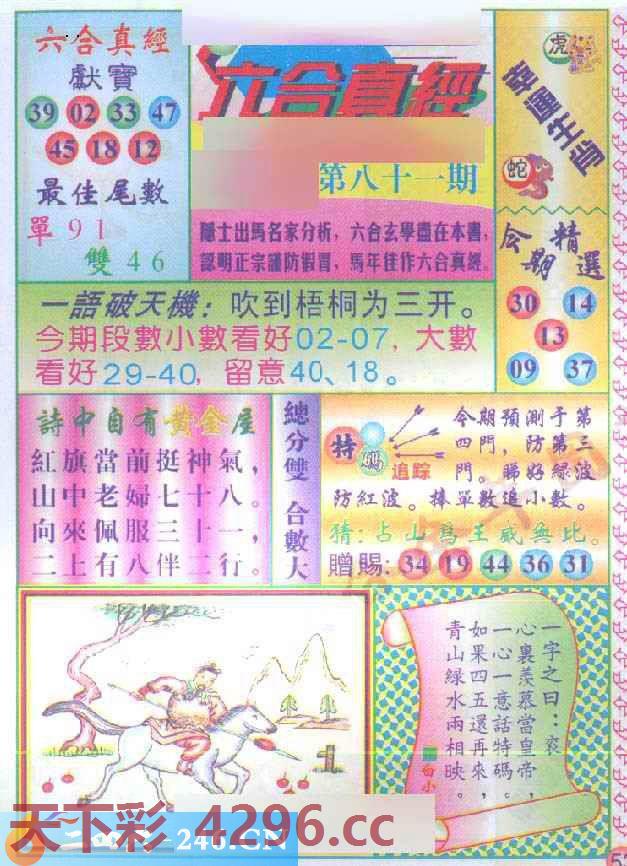 六合真經
獻寶
39 02 33 47
45 18 12
最佳尾數
單91
雙46
六合真經
第八十一期
隱士出馬名家分析，六合玄學盡在本書，
認明正宗謹防假冒，馬年佳作六合真經。
虎
蛇
今期精選
30 14
13
09 37
一語破天機：吹到梧桐为三开。
今期段數小數看好02-07，大數
看好29-40，留意40、18。
詩中自有黃金屋
紅旗當前挺神氣，
山中老婦七十八。
向來佩服三十一，
二上有八伴二行。
總分雙 合數大
特碼
追踪
今期預測于第
四門，防第三
門。睇好綠波
防紅波。捧單數追小數。
猜：占山為王威無比。
贈賜：34 19 44 36 31
一字之曰：衮
心裏羨慕當皇帝，
一心一意話特碼，
如果四五還再來，
青山綠水兩相映。
天下彩 4296.cc
246.CN